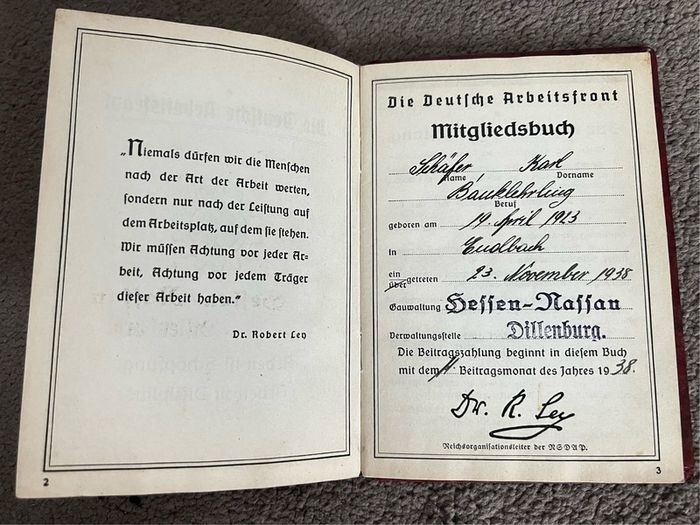 „Niemals dürfen wir die Menschen
nach der Art der Arbeit werten,
sondern nur nach der Leistung auf
dem Arbeitsplatz, auf dem sie stehen.
Wir müssen Achtung vor jeder Ar-
beit, Achtung vor jedem Träger
dieser Arbeit haben.“
Dr. Robert Ley
2
Die Deutsche Arbeitsfront
Mitgliedsbuch
Schäfer Karl
Name Vorname
Banklehrling
Beruf
geboren am 19. April 1923
in Endbach
ein
über getreten 23. November 1938
Gauwaltung Hessen-Nassau
Verwaltungsstelle Dillenburg.
Die Beitragszahlung beginnt in diesem Buch
mit dem 11. Beitragsmonat des Jahres 1938.
Dr. R. Ley
Reichsorganisationsleiter der NSDAP.
3